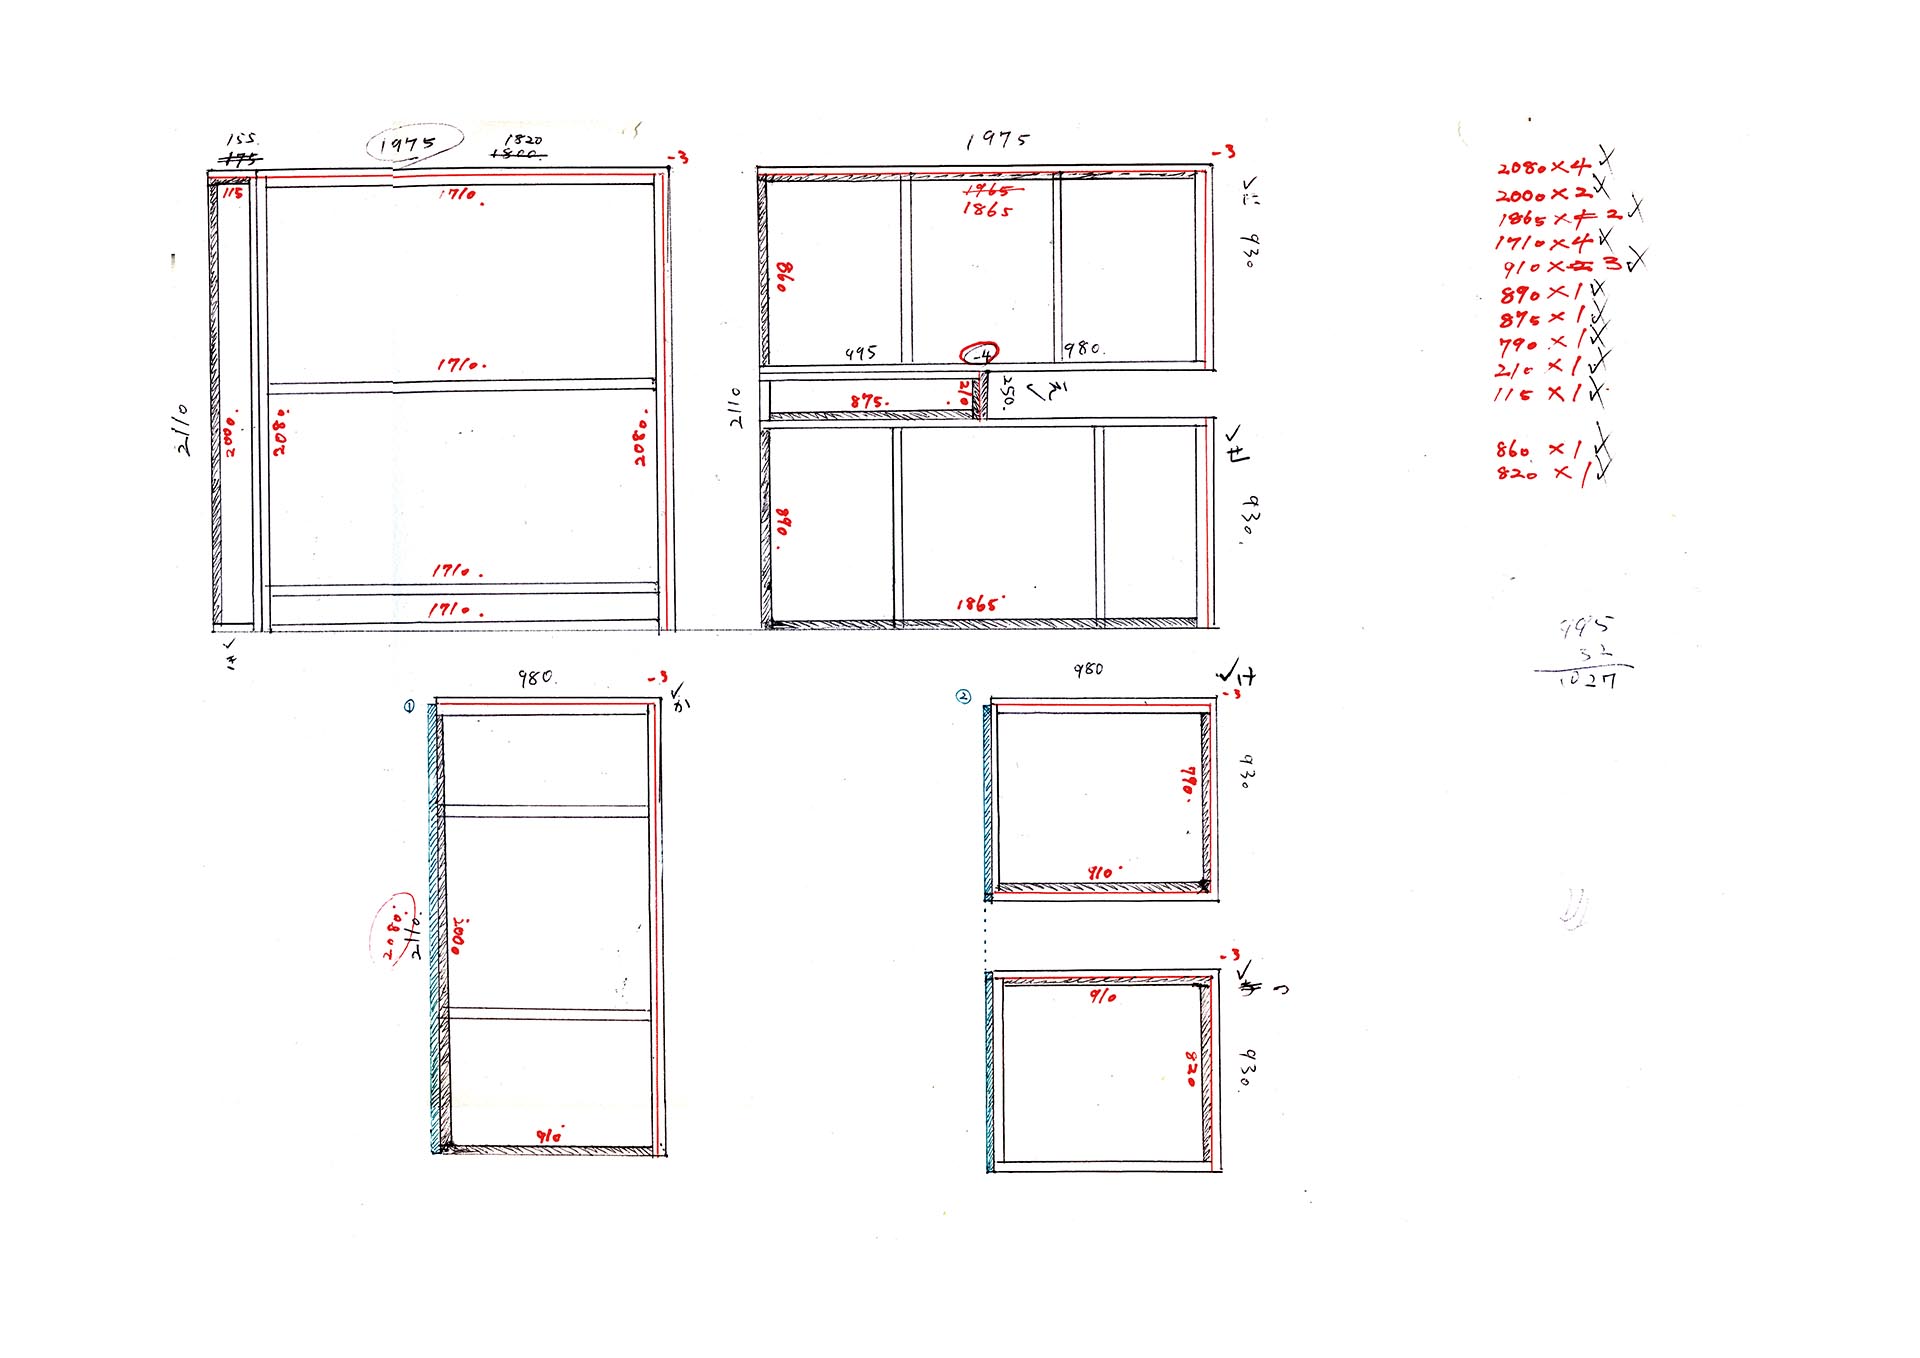 155.
175
1975
1820
1800.
-3
115
1710.
1710.
2110
2000.
2080.
2080.
1710.
1710.
1975
-3
1965
1865
930
860
995
-4
980.
2110
875.
210
250.
890.
1865
930.
980.
-3
①
か
2080.
2110.
2000
910
980
-3
②
930
790.
910
-3
910
820
930.
2080×4
2000×2
1865×1 2
1710×4
910×2 3
890×1
875×1
790×1
210×1
115×1
860×1
820×1
995
32
1027